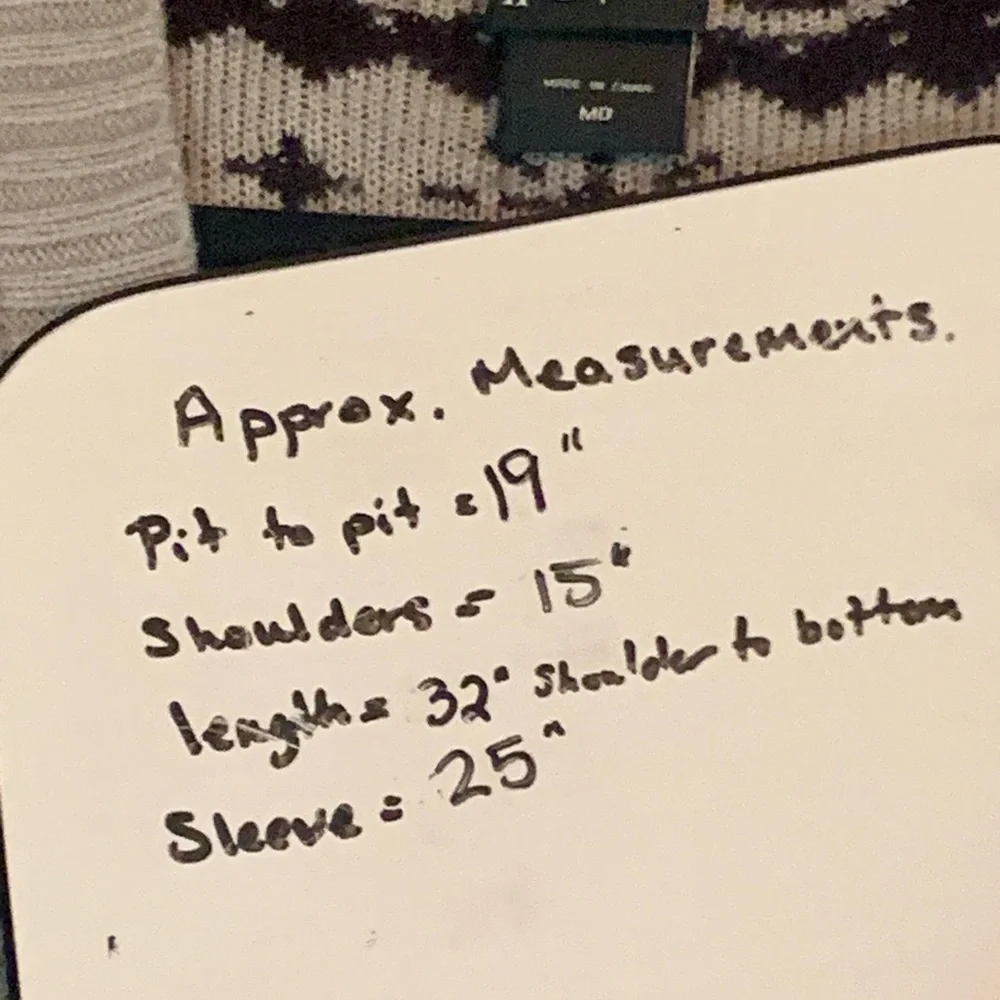 MADE IN CHINA
MD
Approx. Measurements.
Pit to pit = 19"
Shoulders = 15"
length = 32" Shoulder to bottom
Sleeve = 25"